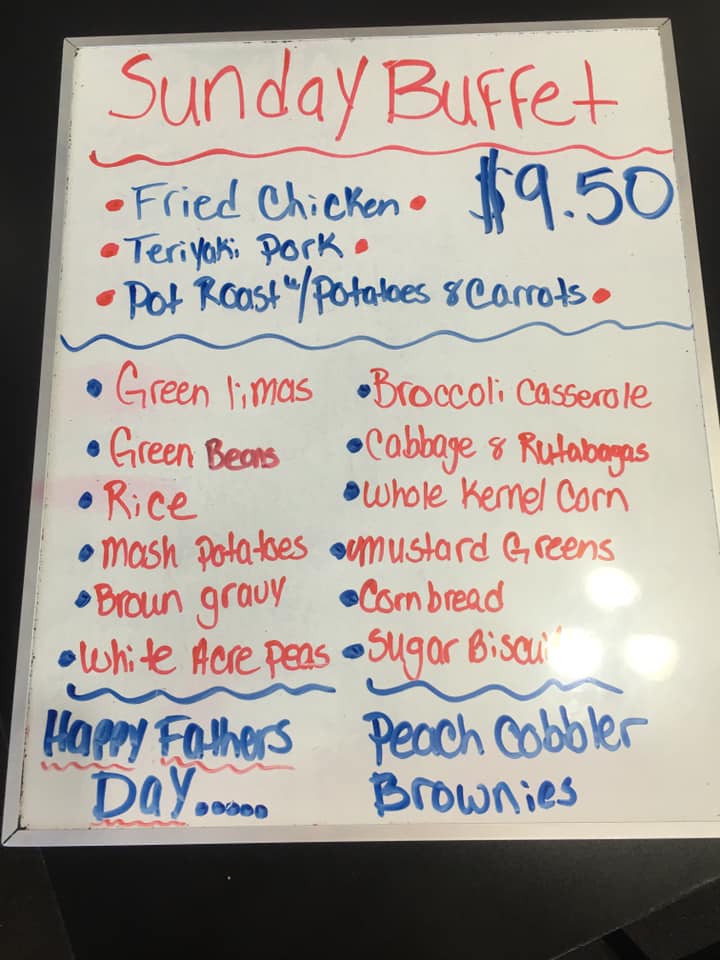 Sunday Buffet
$9.50
• Fried Chicken •
• Teriyaki Pork •
• Pot Roast w/Potatoes & Carrots •
• Green limas
• Green Beans
• Rice
• mash potatoes
• Brown gravy
• White Acre Peas
• Broccoli Casserole
• Cabbage & Rutabagas
• Whole Kernel Corn
• mustard Greens
• Cornbread
• Sugar
Happy Fathers
Day.....
Peach Cobbler
Brownies